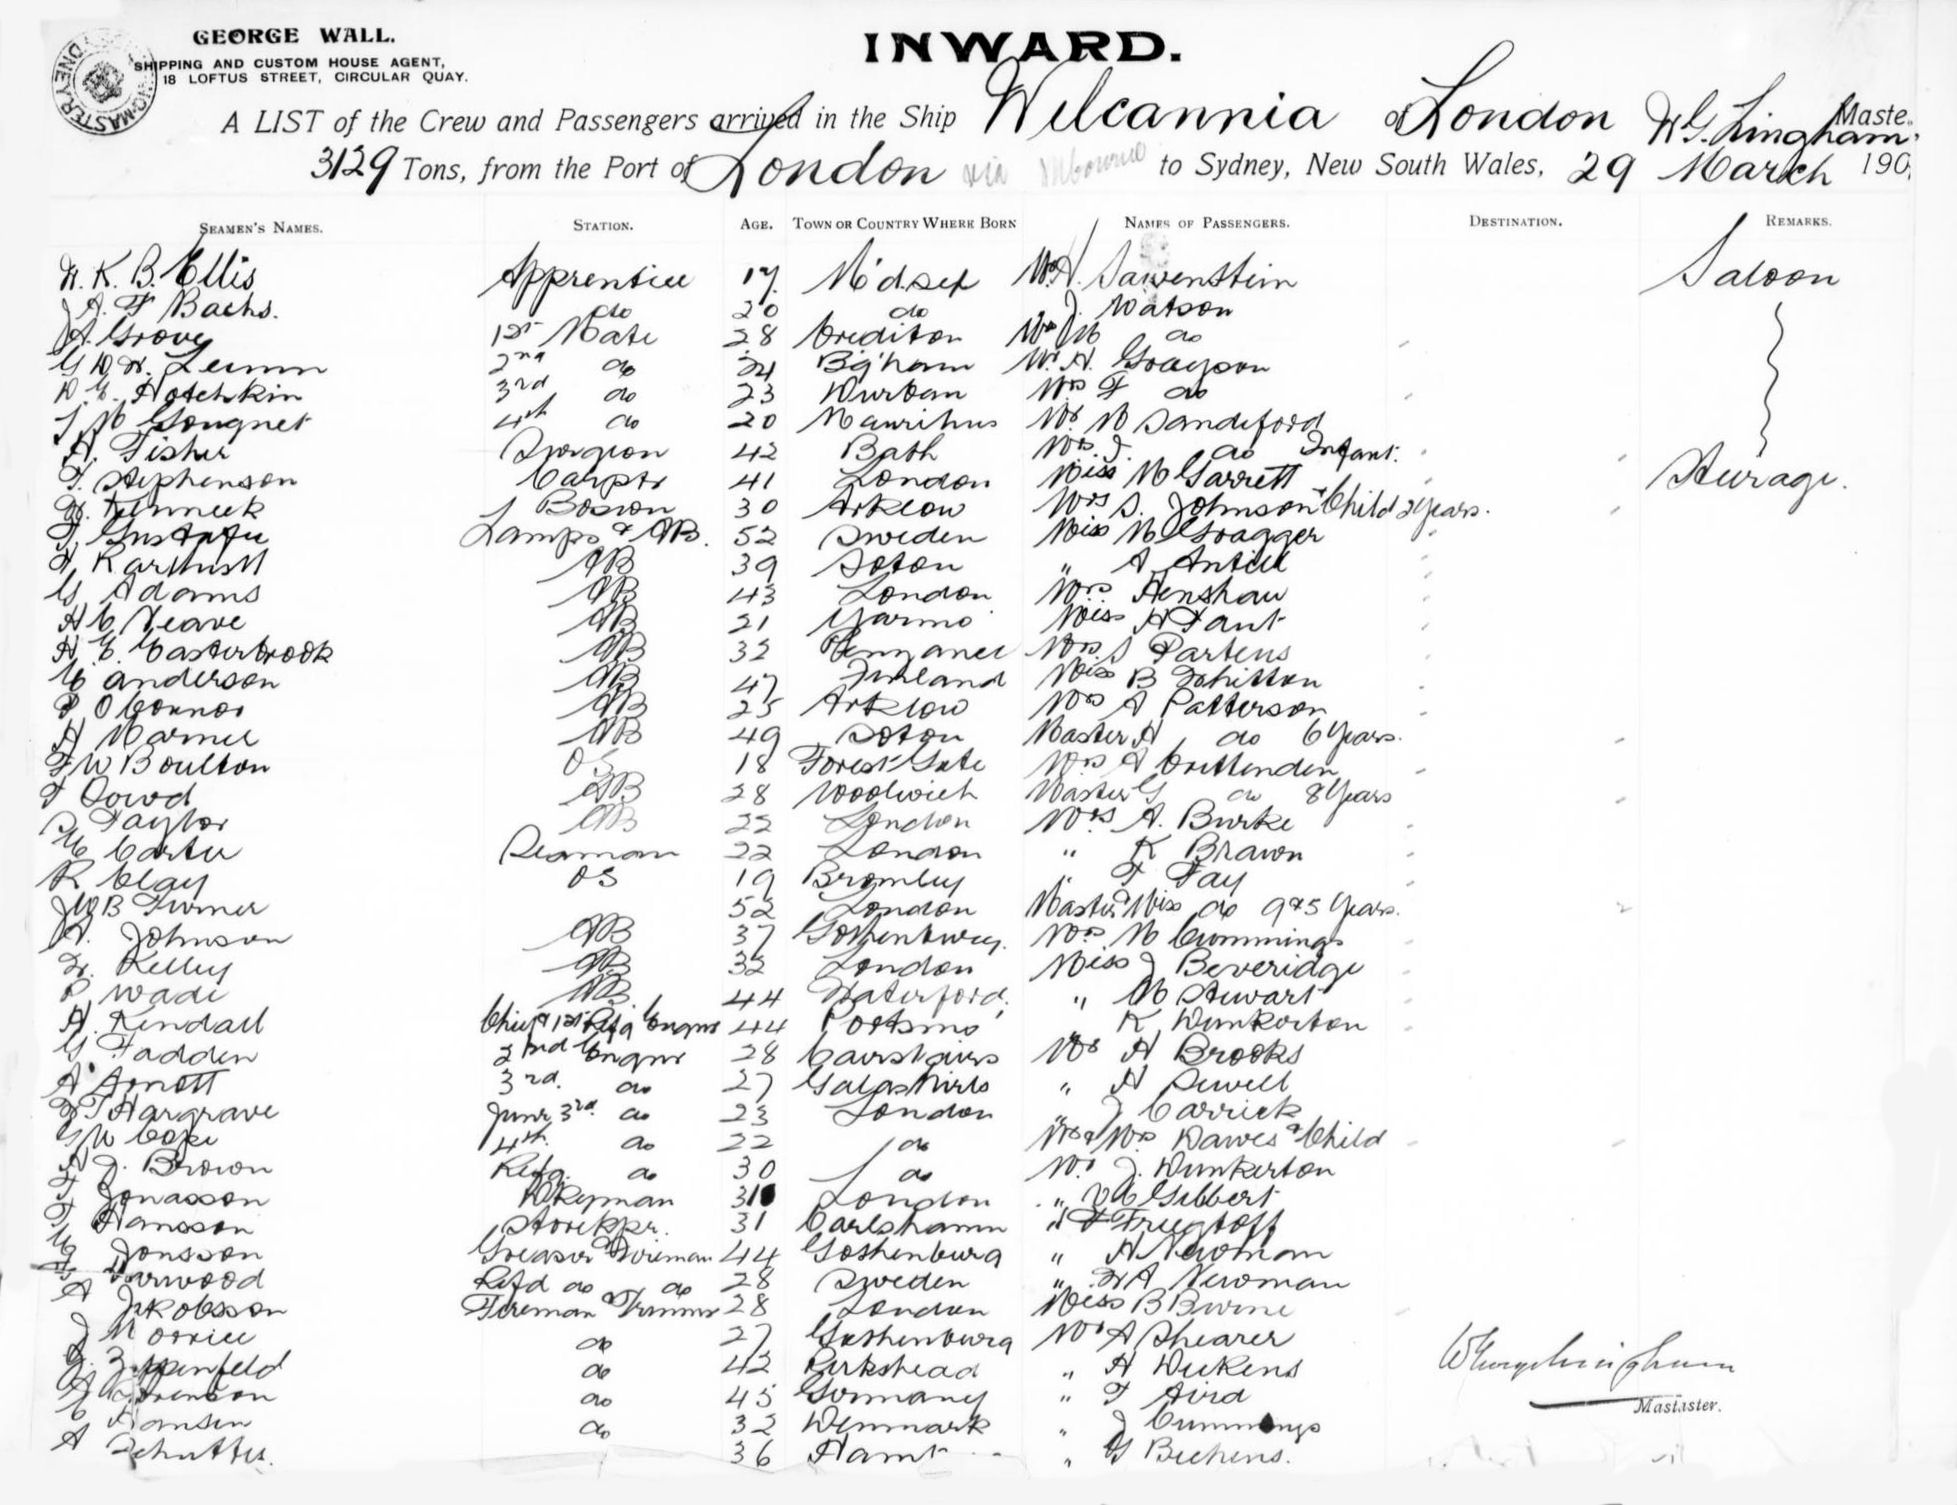 GEORGE WALL.
SHIPPING AND CUSTOM HOUSE AGENT,
18 LOFTUS STREET, CIRCULAR QUAY.
INWARD.
A LIST of the Crew and Passengers arrived in the Ship Wilcannia of London W G. Lingham Maste
3129 Tons, from the Port of London via to Sydney, New South Wales, 29 March 190
SEAMEN'S NAMES. STATION. AGE. TOWN OR COUNTRY WHERE BORN NAMES OF PASSENGERS. DESTINATION. REMARKS.
W. K. B. Ellis Apprentice 17 M'd.sex Saloon
J. A. F Bachs. do 20 do J. Watson
A. Grove 1st Mate 28 Crediton Mrs M do
2nd do 24 Big'ham Mr. A. Grayson
W. G. Hotchkin 3rd do 23 Durban Mrs F do
4th do 20 Mauritius Mr. M Sandeford
A. Fisher Surgeon 42 Bath Mrs. J. do Infant.
F. Stephenson Carptr 41 London Miss M Garrett Steerage.
Bosson 30 Arklow Mrs S. Johnson & Child 2 Years.
Lamps & AB. 52 Sweden Miss M Gragger
AB 39 Soton " A Antill
G. Adams AB 43 London Mrs Henshaw
H C Neave AB 21 Yarmo Miss H Fant
H. E. Easterbrook AB 32 Penzance Mrs. S Partens
C anderson AB 47 Finland Miss B Whitton
P O'Connor AB 25 Arklow Mrs A Patterson
H Warner AB 49 Soton Master H do 6 Years.
F W Boulton OS 18 Forest Gate Mrs A Crittenden
F Dowd AB 28 Woolwich Master G do 8 Years
Taylor AB 22 London Mrs A. Burke
C Carter Seaman 22 London " K Brawn
R Clay OS 19 Bromley " F Fay
J W B Turner 52 London Master & Miss do 9 & 5 Years.
A. Johnson AB 37 Gothenburg. Mrs M Cummings
W. Kelley AB 32 London Miss J Beveridge
P. Wade AB 44 Waterford " M Stewart
H. Kendall Chief & 1st Refg Engnr 44 Portsmo K Dunkerton
G Fadden 2nd Engnr 28 Carstairs Mr H Brooks
A Arnott 3rd. do 27 Galashiels " H Sewell
Hargrave Junr 3rd. do 23 London " J Carrick
G W Cope 4th do 22 do Mr & Mrs Dawes & Child
A J. Brown Refg. do 30 do Mr J. Dunkerton
F Jonasson Dkeyman 31 London " Gibbert
F Hansson Storekpr. 31 Carlshamn "
Jonsson Greaser & Fireman 44 Gothenburg " H Newman
Refd do do 28 Sweden " W A Newman
A Jakobsson Fireman & Trimmer 28 London Miss B Burne
do 27 Gothenburg Mr A Shearer
do 42 Birkshead " H Dickens
do 45 Germany " F Aird
C Hansen do 32 Denmark " J Cummings
A Schutter. 36 Hamb " G
Master.